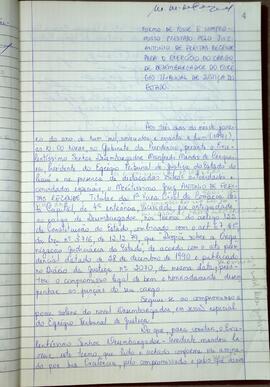 4
TERMO DE POSSE E COMPRO-
MISSO PRESTADO PELO JUIZ
ANTONIO DE FREITAS REZENDE
PARA O EXERCÍCIO DO CARGO
DE DESEMBARGADOR DO EGRÉ-
GIO TRIBUNAL DE JUSTIÇA DO
ESTADO.
Aos três dias do mês de janei-
ro do ano de um mil, novecentos e noventa e um (1991),
às 10:00 horas, no Gabinete da Presidência, presente o Exce-
lentíssimo Senhor Desembargador
Presidente do Egrégio Tribunal de Justiça do Estado do
Piauí e na presença de
convidados especiais, o Meritíssimo Juiz ANTONIO DE FREI-
TAS REZENDE, Titular da 1ª Vara Cível da Comarca de
Capital, de 4ª entrância, por antiguidade,
ao cargo de Desembargador, nos termos do artigo 122
da Constituição do Estado, combinado com o art.
da Lei nº 3.716, de 12.12.79, que "Dispõe sobre a Orga-
nização Judiciária do Estado, de acordo com o ato pre-
sidencial datado de 28 de dezembro de 1990 e publicado
no Diário da Justiça nº 2070, da mesma data,
o compromisso legal de bem e honradamente desem-
penhar as funções do seu cargo.
Seguiu-se ao compromisso a
posse solene do novel Desembargador, em sessão especial
do Egrégio Tribunal de Justiça.
Do que, para constar, o Exce-
lentíssimo Senhor Desembargador-Presidente mandou la-
vrar este termo, que lido e achado conforme vai assina-
do por Sua Excelência, pelo compromissado e pelo